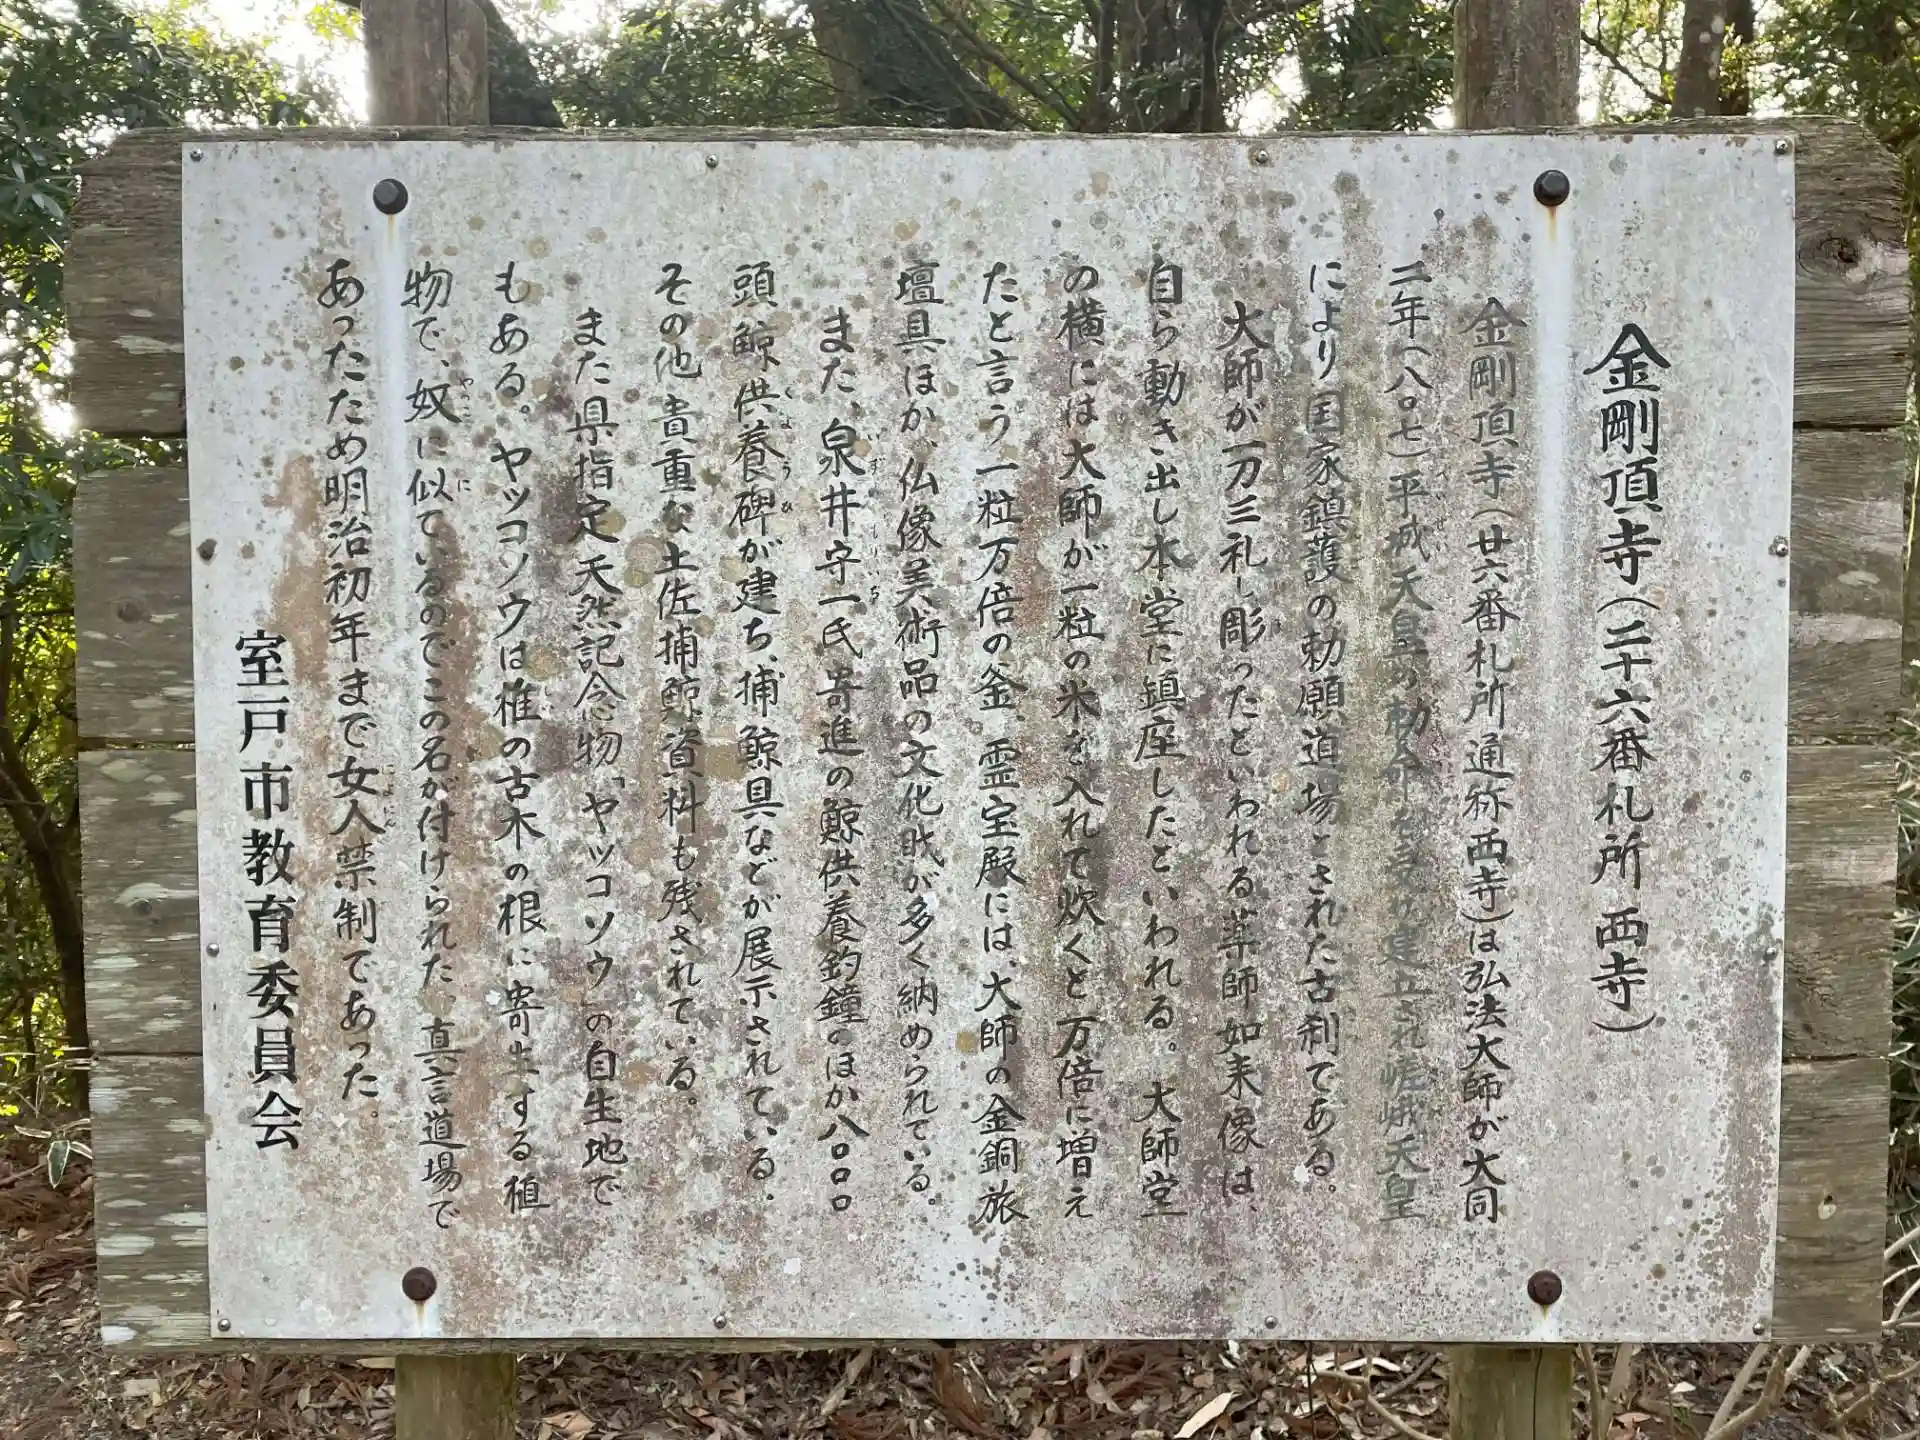 金剛頂寺（二十六番札所 西寺）
金剛頂寺（廿六番札所通称西寺）は弘法大師が大同
二年（八〇七）平城天皇の勅命を受け建立され嵯峨天皇
により国家鎮護の勅願道場とされた古刹である。
大師が一刀三礼し彫ったといわれる薬師如来像は、
自ら動き出し本堂に鎮座したといわれる。大師堂
の横には大師が一粒の米を入れて炊くと万倍に増え
たと言う一粒万倍の釜、霊宝殿には、大師の金銅旅
壇具ほか、仏像美術品の文化財が多く納められている。
また、泉井守一氏寄進の鯨供養釣鐘のほか八〇〇〇
頭鯨供養碑が建ち、捕鯨具などが展示されている。
その他貴重な土佐捕鯨資料も残されている。
また県指定天然記念物「ヤッコソウ」の自生地で
もある。ヤッコソウは椎の古木の根に寄生する植
物で、奴に似ているのでこの名が付けられた 真言道場で
あったため明治初年まで女人禁制であった。
室戸市教育委員会